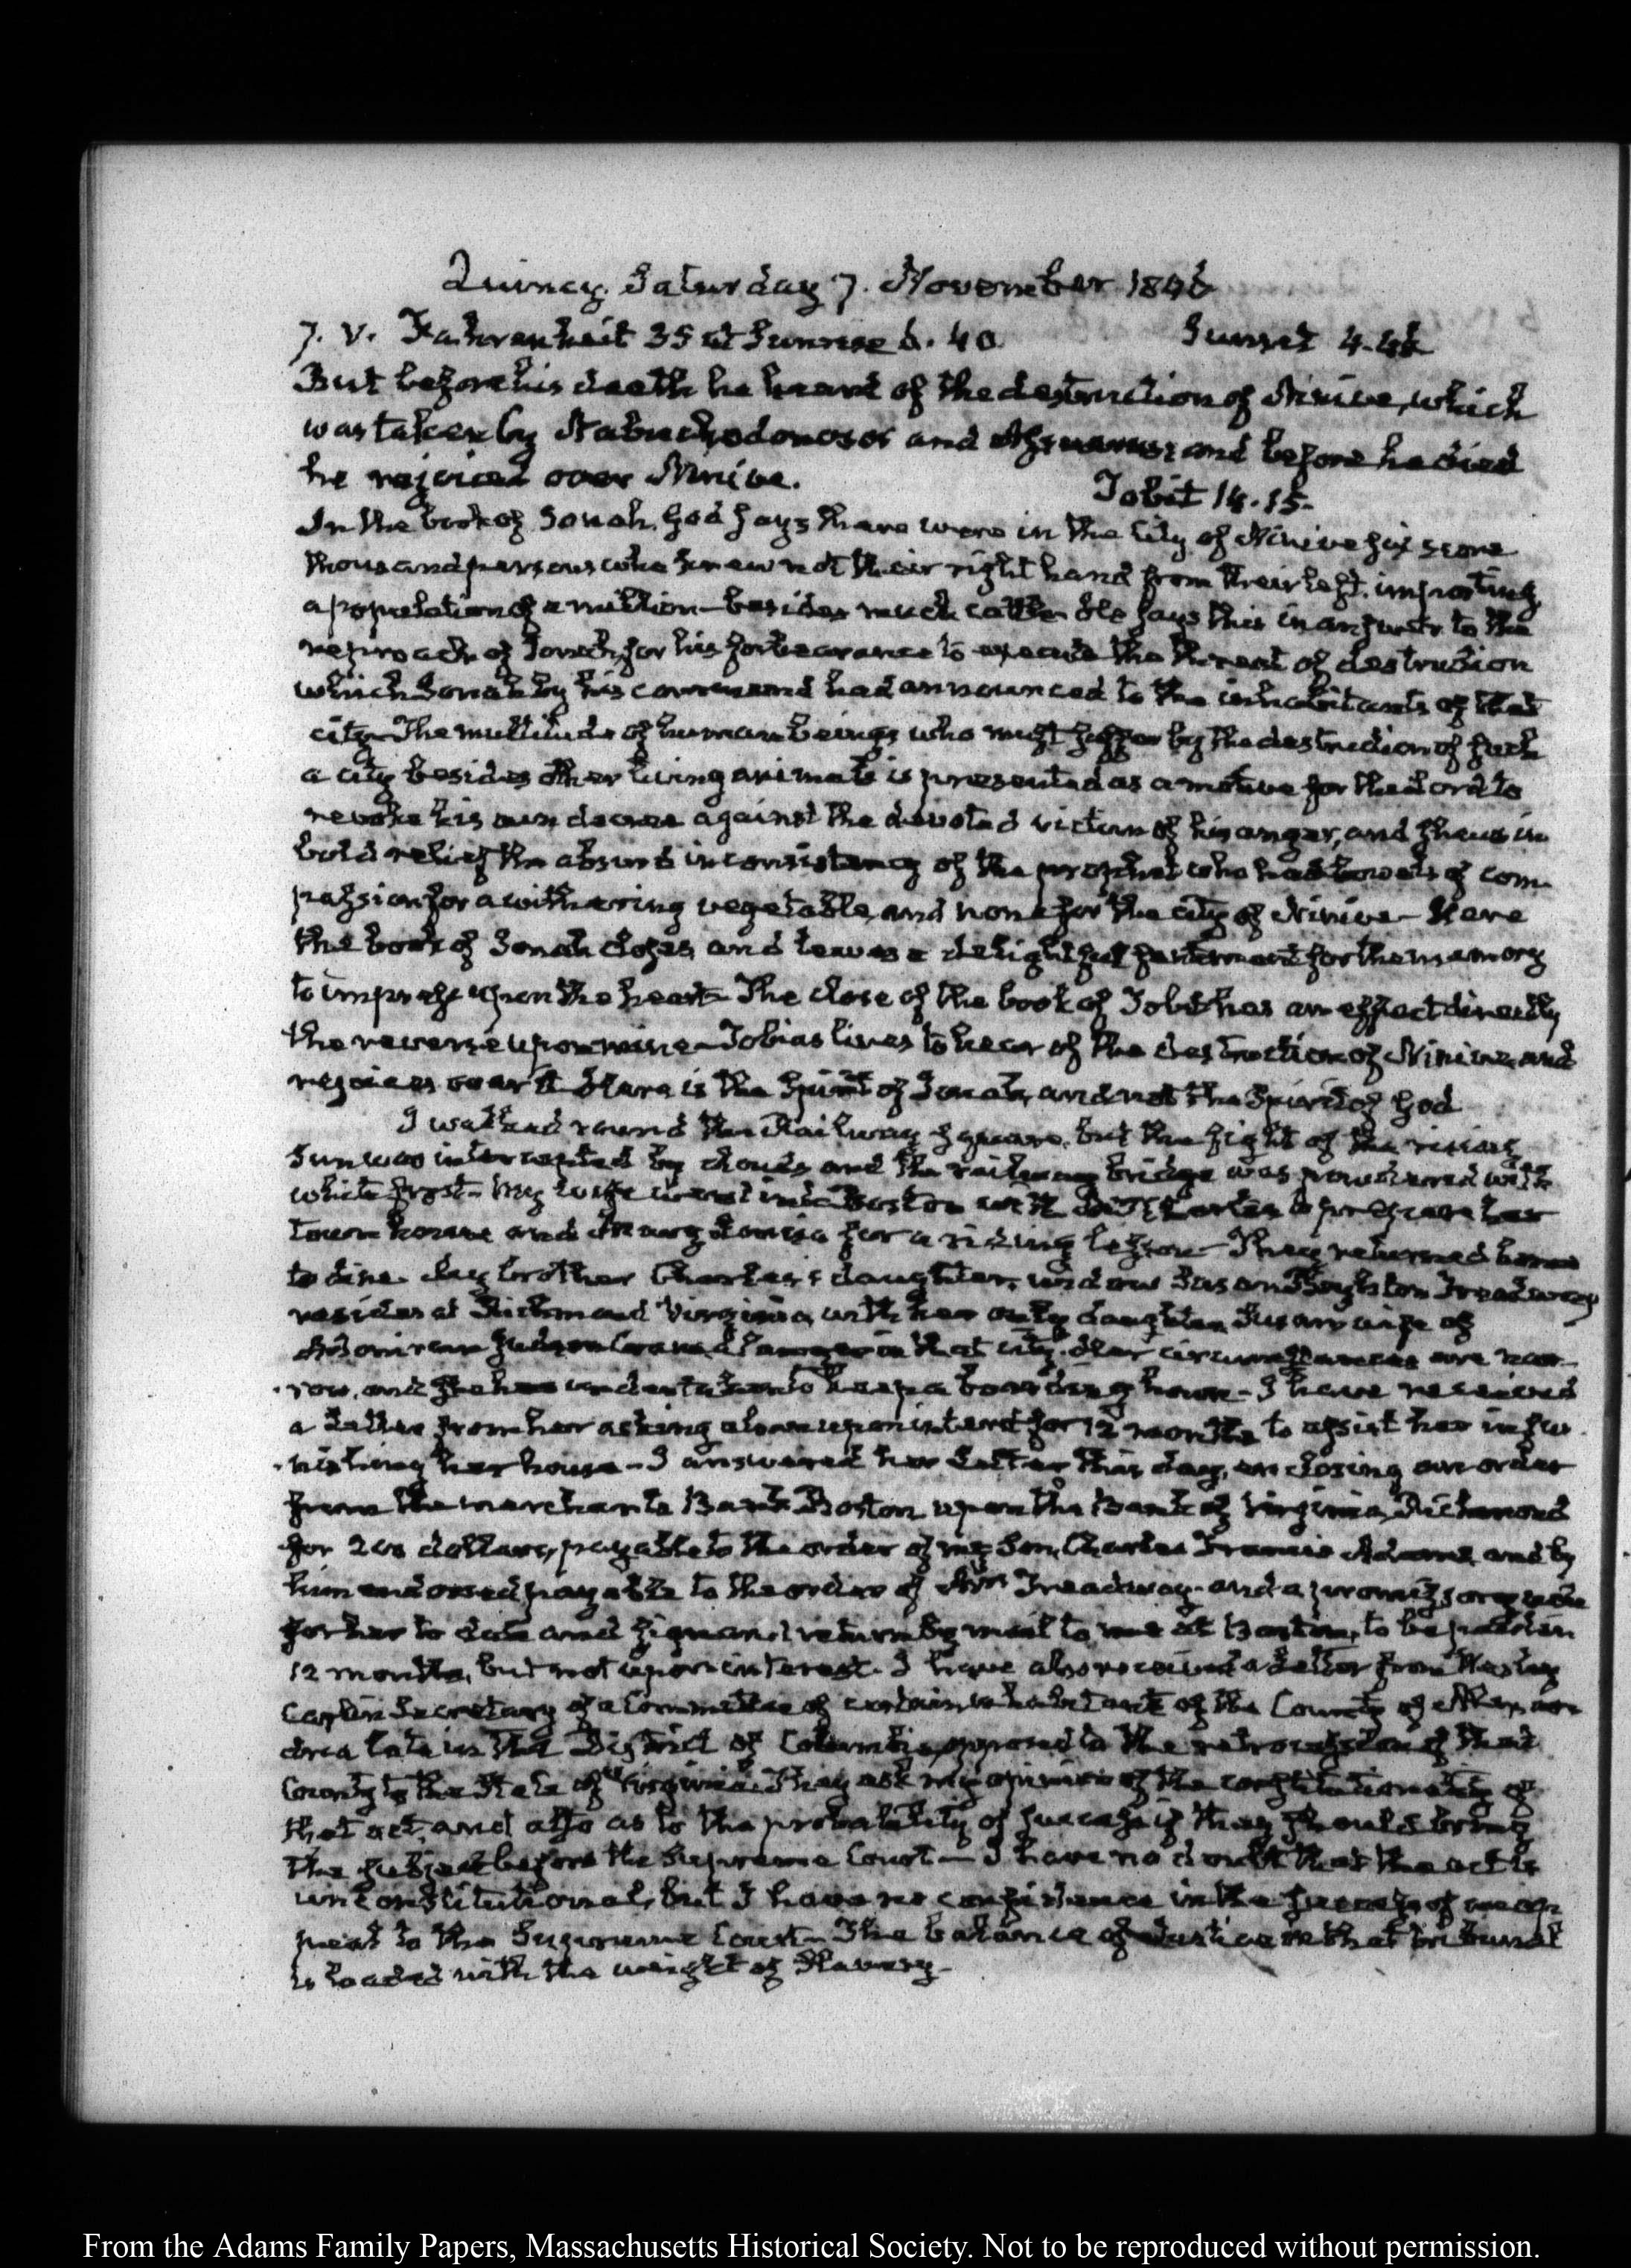 Quincy. Saturday 7. November 1846
7. V. Fahrenheit 35 at Sunrise 6. 40. Sunset 4.46
But before his death he heard of the destruction of Ninive, which
was taken by Nabuchodonosor and Assuerus; and before he died
he rejoiced over Ninive. Tobit 14.15.
In the book of Jonah, God says there were in the City of Ninive six score
thousand persons who knew not their right hand from their left. importing
a population of a million—besides much cattle. He says this in answer to the
reproach of Jonah, for his forbearance to execute the threat of destruction
which Jonah by his command had announced to the inhabitants of that
city. The multitude of human beings who must suffer by the destruction of such
a city besides other living animals is presented as a motive for the Lord to
revoke his own decree against the devoted victim of his anger, and shews in
bold relief the absurd inconsistency of the prophet who had bowels of com-
passion for a withering vegetable, and none for the city of Ninive— Here
the book of Jonah closes, and leaves a delightful sentiment for the memory
to impress upon the heart— The close of the book of Tobit has an effect directly
the reverse upon mine— Tobias lives to hear of the destruction of Ninive, and
rejoices over it. Here is the Spirit of Jonah, and not the Spirit of God
I walked round the Railway Square, but the sight of the rising
Sun was intercepted by clouds and the railway bridge was powdered with
white frost— My wife went into Boston with to prepare her
town house and Mary Louisa for a riding lesson— They returned home
to dine. My brother Charles's daughter, widow Susan Boylston Treadway
resides at Richmond Virginia, with her only daughter Susan wife of
in that city. Her circumstances are nar-
row, and she has undertaken to keep a boarding house— I have received
a Letter from her asking a loan upon interest for 12 months to assist her in fur-
nishing her house— I answered her Letter this day, enclosing an order
from the Merchants Bank Boston upon the Bank of Virginia, Richmond
for 200 dollars, payable to the order of my Son, Charles Francis Adams, and by
him endorsed payable to the order of Mrs Treadway—and a promissory note
for her to date and sign and return by mail to me at Boston, to be paid in
12 months, but not upon interest. I have also received a Letter from
Carlin Secretary of a Committee of certain inhabitants of the County of Alexan-
dria late in the District of Columbia, opposed to the retrocession of that
County to the State of Virginia. They ask my opinion of the constitutionality of
that act, and also as to the probability of success if they should bring
the subject before the Supreme Court— I have no doubt that the act is
unconstitutional, but I have no confidence in the success of an ap-
peal to the Supreme Court— The balance of Justice in that tribunal
is loaded with the weight of Slavery—
From the Adams Family Papers, Massachusetts Historical Society. Not to be reproduced without permission.